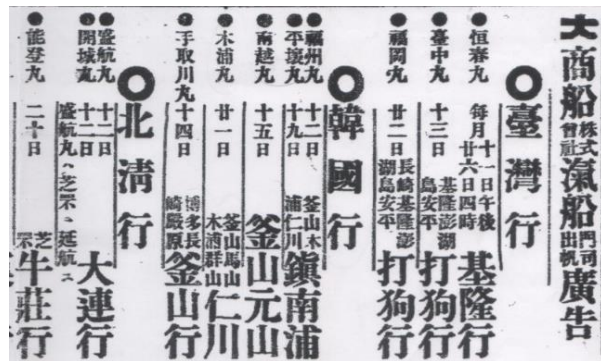 大商船株式會社滊船門司出帆廣告
◎臺灣行
●恒春丸 每月十一日午後廿六日四時 基隆行
●臺中丸 十三日 基隆澎湖島安平 打狗行
●福岡丸 廿二日 長崎基隆澎湖島安平 打狗行
◎韓國行
●福州丸 十二日
●平壤丸 十九日 釜山木浦仁川 鎭南浦
●南越丸 十五日 釜山元山
●木浦丸 廿一日 釜山馬山木浦群山 仁川
●手取川丸 十四日 博多長崎嚴原 釜山行
◎北淸行
●盛航丸 十二日
●開城丸 十二日 大連行
盛航丸ハ芝罘ヘ延航ス
●能登丸 二十日 芝罘 牛莊行